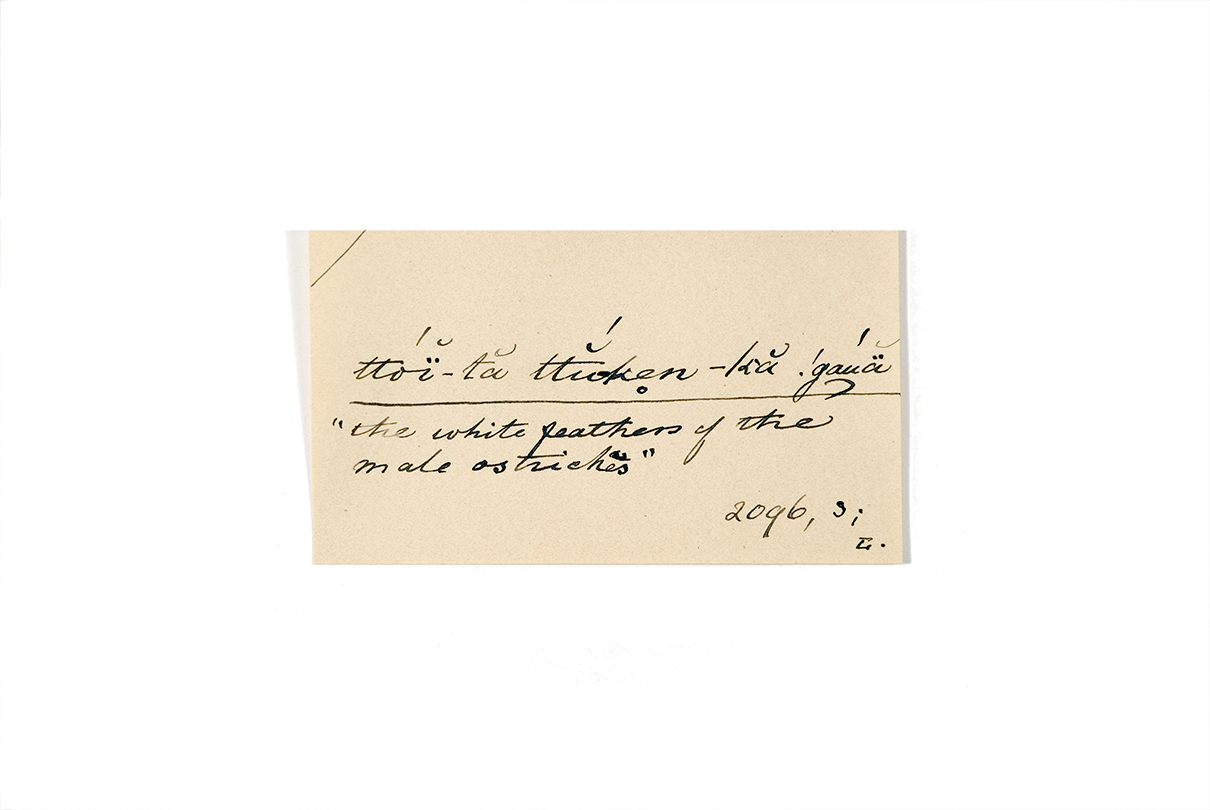 ttóĭ̤-tă ttŭkẹn-kă !gáuä̆
"the white feathers of the
male ostriches"
2096, 3;
L.